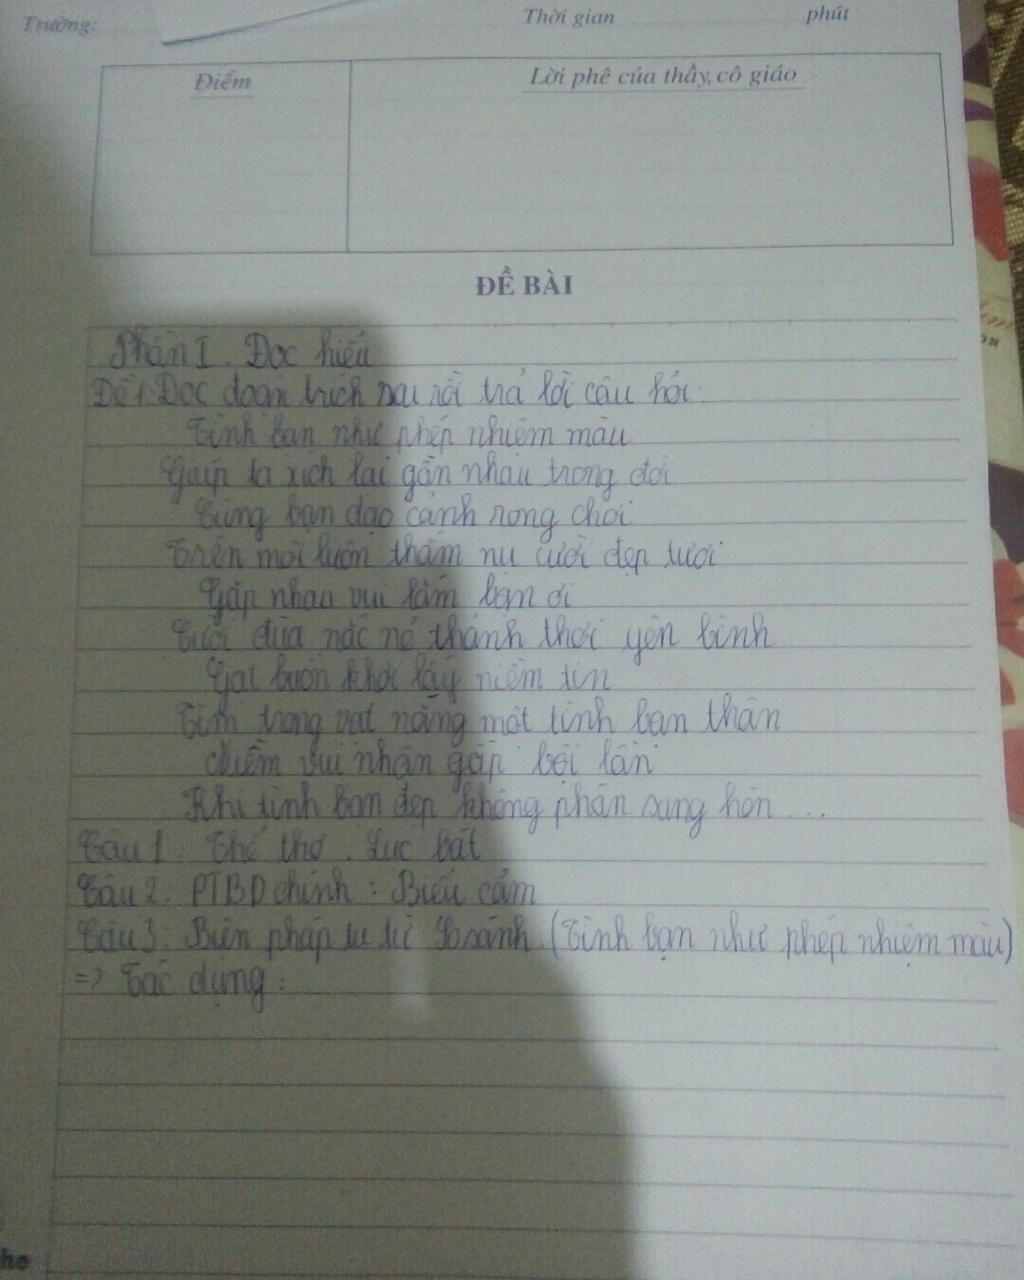 Trường:
Thời gian phút
Điểm
Lời phê của thầy, cô giáo
ĐỀ BÀI
Phần I. Đọc hiểu
Đề 1: Đọc đoạn trích sau rồi trả lời câu hỏi:
Tình bạn như phép nhiệm màu
Giúp ta xích lại gần nhau trong đời
Cùng bạn dạo cảnh rong chơi
Trên môi luôn thắm nụ cười đẹp tươi
Gặp nhau vui lắm bạn ơi
Cười đùa nắc nẻ thảnh thơi yên bình
Gạt buồn khơi lấy niềm tin
Tìm trong vạt nắng một tình bạn thân
Niềm vui nhận gấp bội lần
Khi tình bạn đẹp không phân sang hèn ...
Câu 1: Thể thơ: Lục bát
Câu 2: PTBĐ chính: Biểu cảm
Câu 3: Biện pháp tu từ: So sánh (Tình bạn như phép nhiệm màu)
=> Tác dụng: